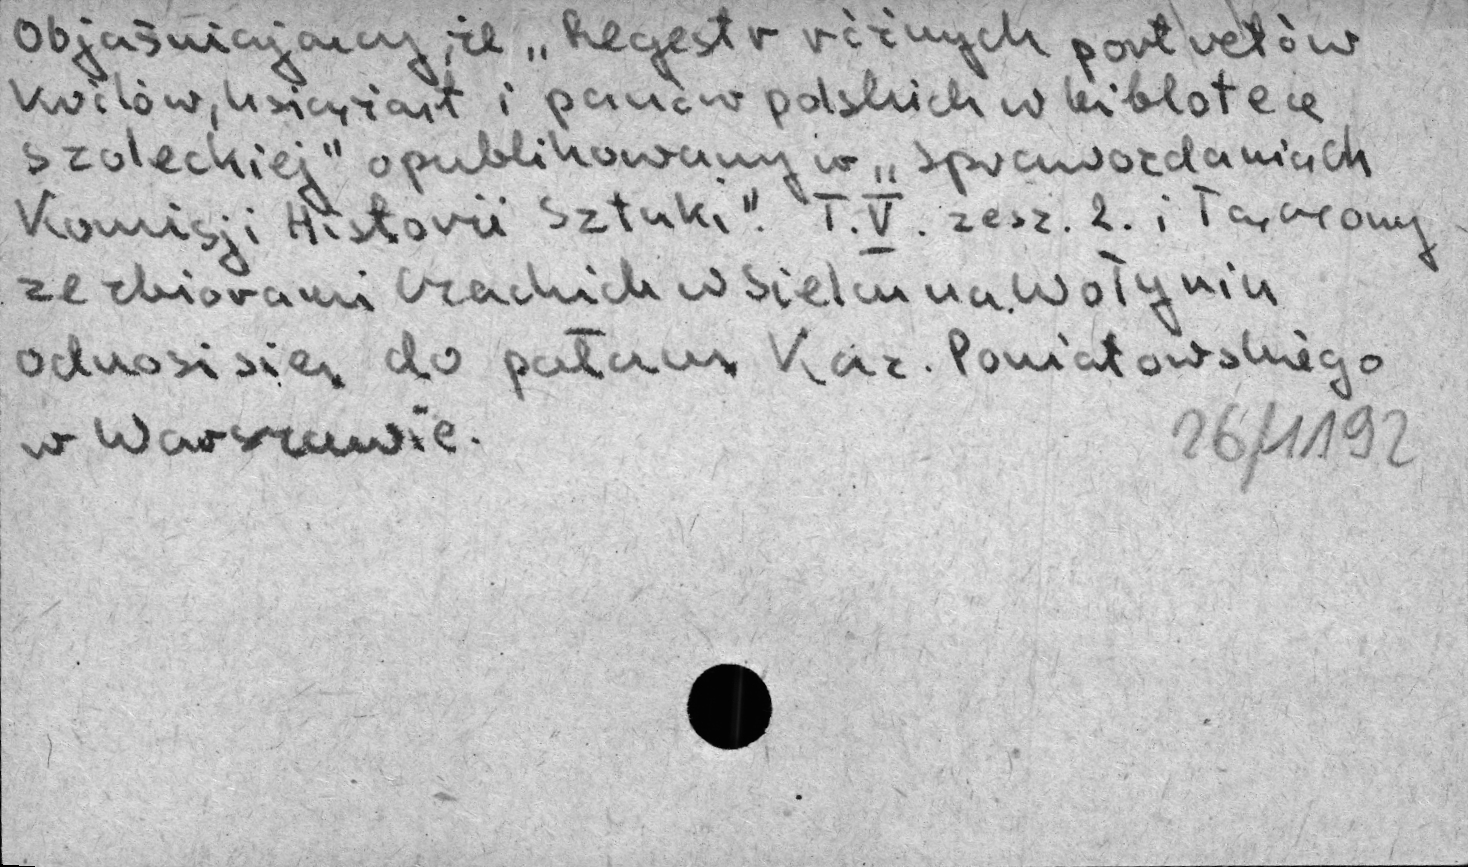 Objaśniający, że „Regestr różnych portretów
królów, książąt i panów polskich w bibliotece
szoleckiej" opublikowany w „Sprawozdaniach
Komisji Historii Sztuki". T. V. zesz. 2. i łączony
ze zbiorami Czackich w Sielcu na Wołyniu
odnosi się do pałacu Kaz. Poniatowskiego
w Warszawie.
26/1192